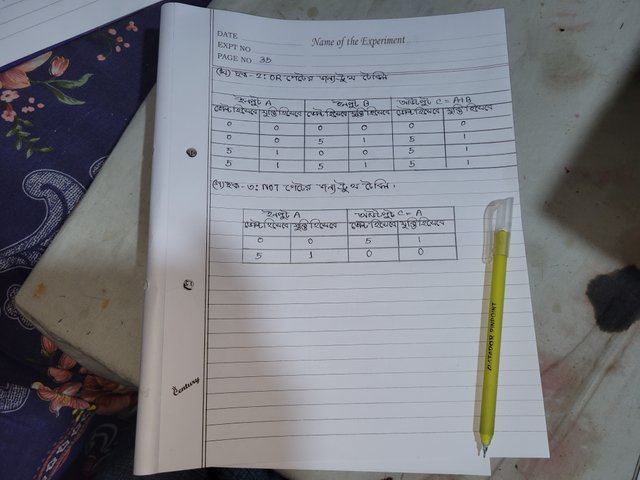 DATE
EXPT NO
PAGE NO 35
Name of the Experiment
(খ) ছক-২: OR গেটের জন্য ট্রুথ টেবিল
ইনপুট A ইনপুট B আউটপুট C = A+B
ভোল্ট হিসেবে যুক্তি হিসেবে ভোল্ট হিসেবে যুক্তি হিসেবে ভোল্ট হিসেবে যুক্তি হিসেবে
0 0 0 0 0 0
0 0 5 1 5 1
5 1 0 0 5 1
5 1 5 1 5 1
(গ) ছক-৩: NOT গেটের জন্য ট্রুথ টেবিল।
ইনপুট A আউটপুট C = A
ভোল্ট হিসেবে যুক্তি হিসেবে ভোল্ট হিসেবে যুক্তি হিসেবে
0 0 5 1
5 1 0 0
Century
PINPOINT